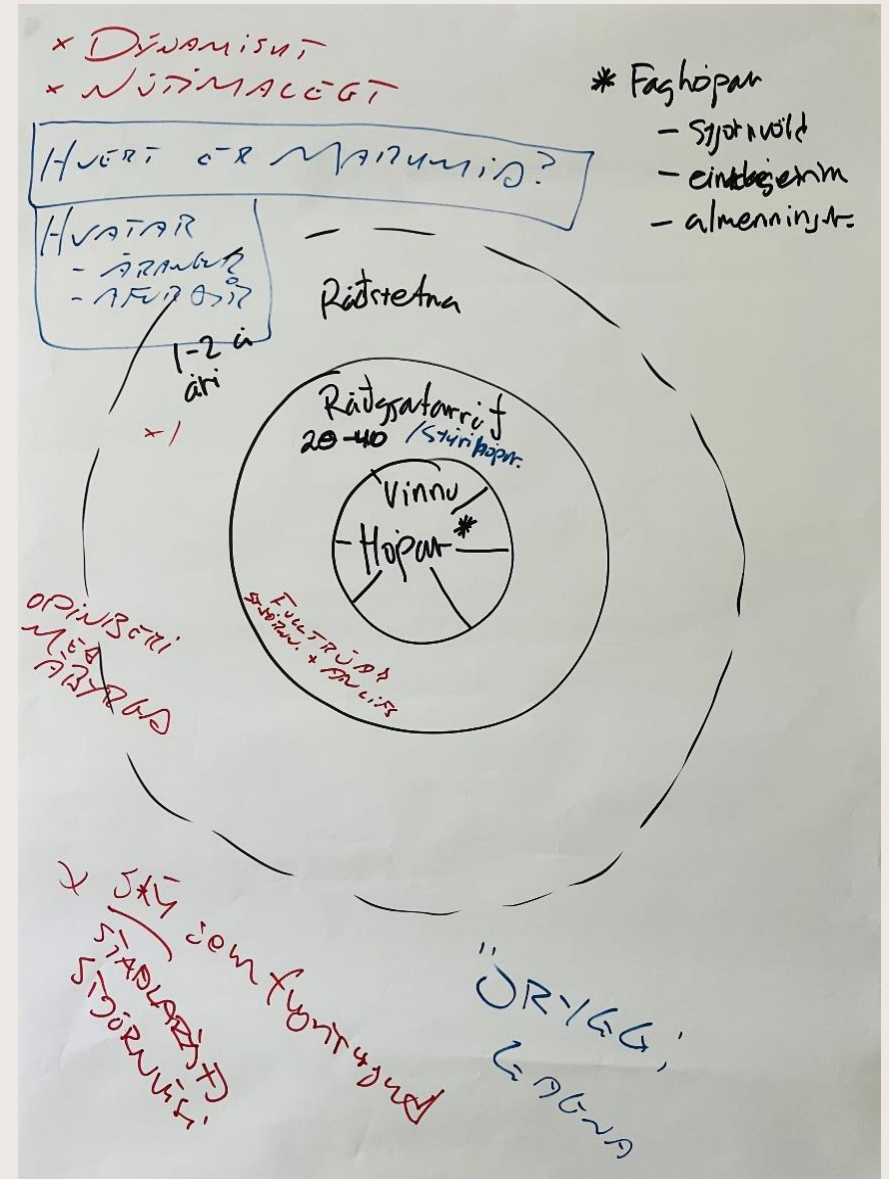 × DÝNAMISKT
× NÚTÍMALEGT
HVERT ER MARKMIÐ?
HVATAR
- ÁRANGUR
- AFURÐIR
* Faghópar
- stjórnvöld
- almennings
Ráðstefna
1-2 á
ári
× 1
Ráðgjafarráð
20-40 /stýrihópur
Vinnu
Hópar *
FULLTRÚAR
OPINBERI
MEÐ
ÁBYRGÐ
× SKÝ sem
STAÐLARÁÐ
STJÓRNVÍSI
ÖRYGGI
GAGNA